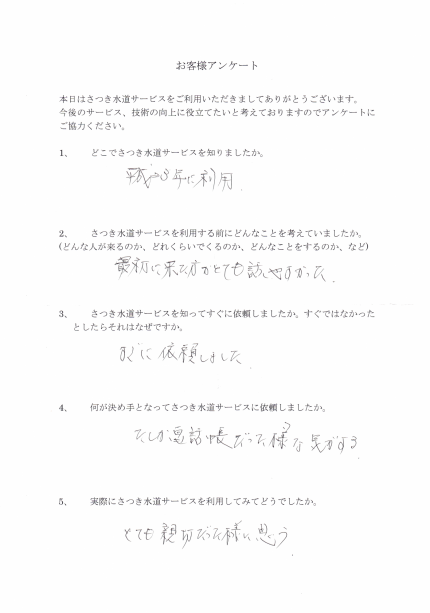 お客様アンケート
本日はさつき水道サービスをご利用いただきましてありがとうございます。
今後のサービス、技術の向上に役立てたいと考えておりますのでアンケートに
ご協力ください。
1、 どこでさつき水道サービスを知りましたか。
年に利用
2、 さつき水道サービスを利用する前にどんなことを考えていましたか。
(どんな人が来るのか、どれくらいでくるのか、どんなことをするのか、など)
最初に来た方がとても話しやすかった.
3、 さつき水道サービスを知ってすぐに依頼しましたか。すぐではなかった
としたらそれはなぜですか。
すぐに依頼しました.
4、 何が決め手となってさつき水道サービスに依頼しましたか。
たしか電話帳だった様な気がする
5、 実際にさつき水道サービスを利用してみてどうでしたか。
とても親切だった様に思う.